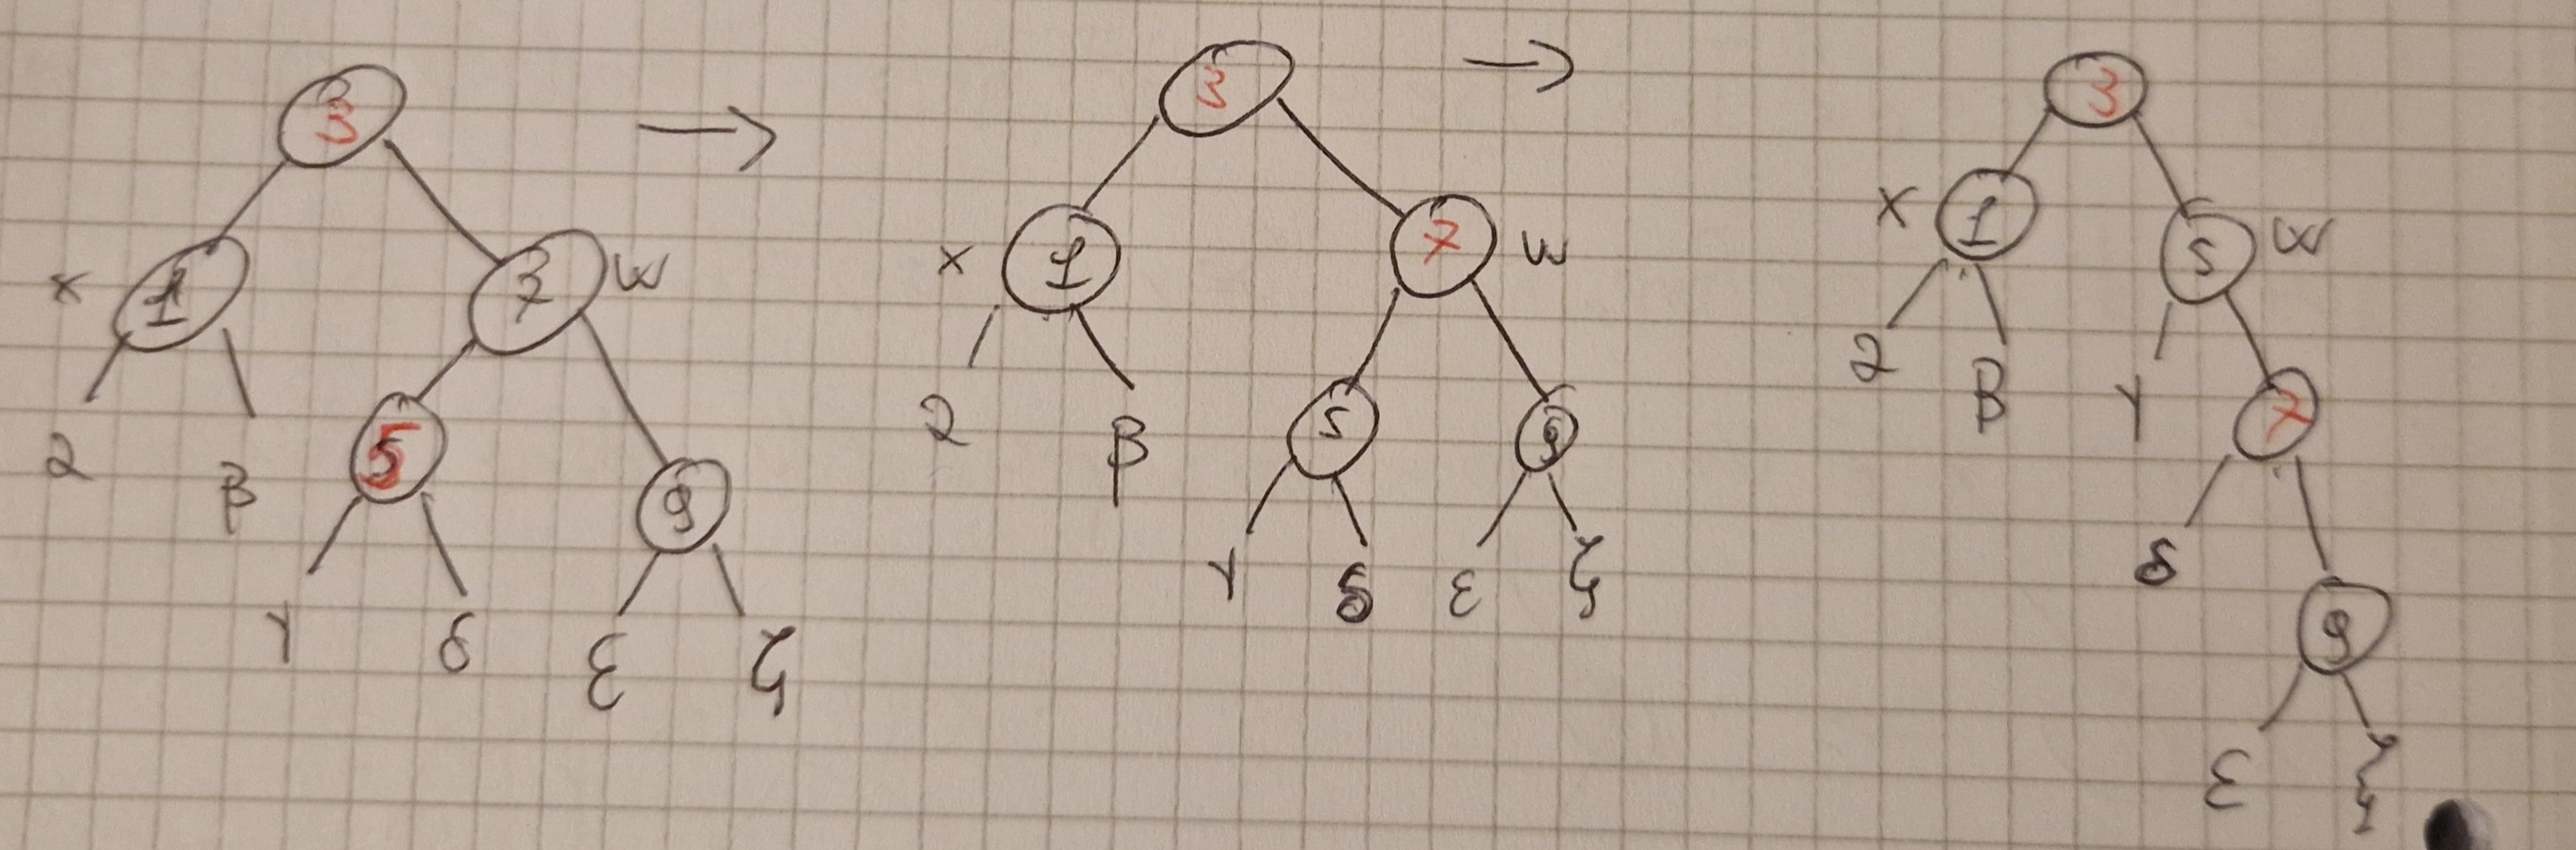 3 →
x 1 7 w
α β 5 9
γ δ ε ζ
3 →
x 1 7 w
α β 5 9
γ δ ε ζ
3
x 1 5 w
α β γ 7
δ 9
ε ζ